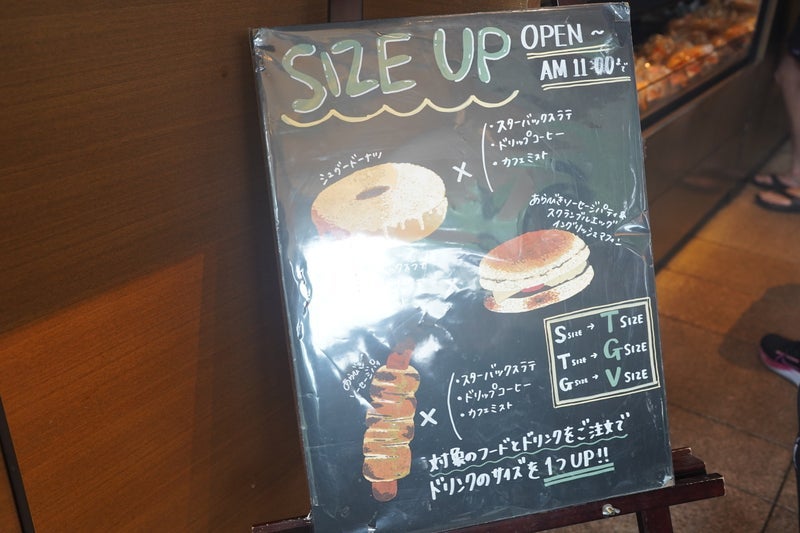 SIZE UP
OPEN ~
AM 11:00まで
シュガードーナツ
×
・スターバックスラテ
・ドリップコーヒー
・カフェミスト
あらびきソーセージパティ&
スクランブルエッグ
イングリッシュマフィン
バックスラテ
S SIZE → T SIZE
T SIZE → G SIZE
G SIZE → V SIZE
あらびき
ソーセージパイ
×
・スターバックスラテ
・ドリップコーヒー
・カフェミスト
対象のフードとドリンクをご注文で
ドリンクのサイズを1つUP!!